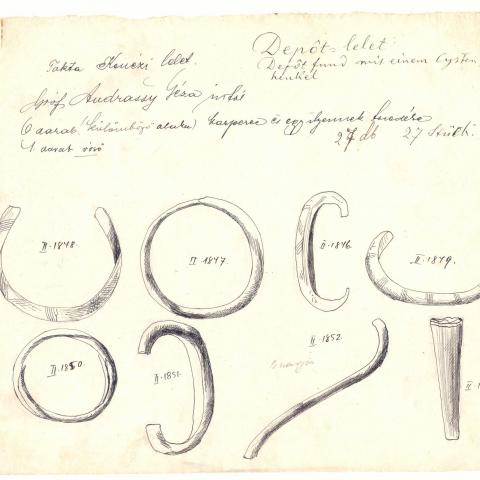 Depôt-lelet
Takta Kenézi lelet.
Depôt fund mit einem Cysten
henkel
Gróf Andrássy Géza
6 darab (különböző alakú) karperec és egy ilyennek töredéke
27 db 27 Stück.
1 darab véső
II. 1848.
II. 1847.
II. 1846.
II. 1849.
II. 1850.
II. 1851.
II. 1852.
II.